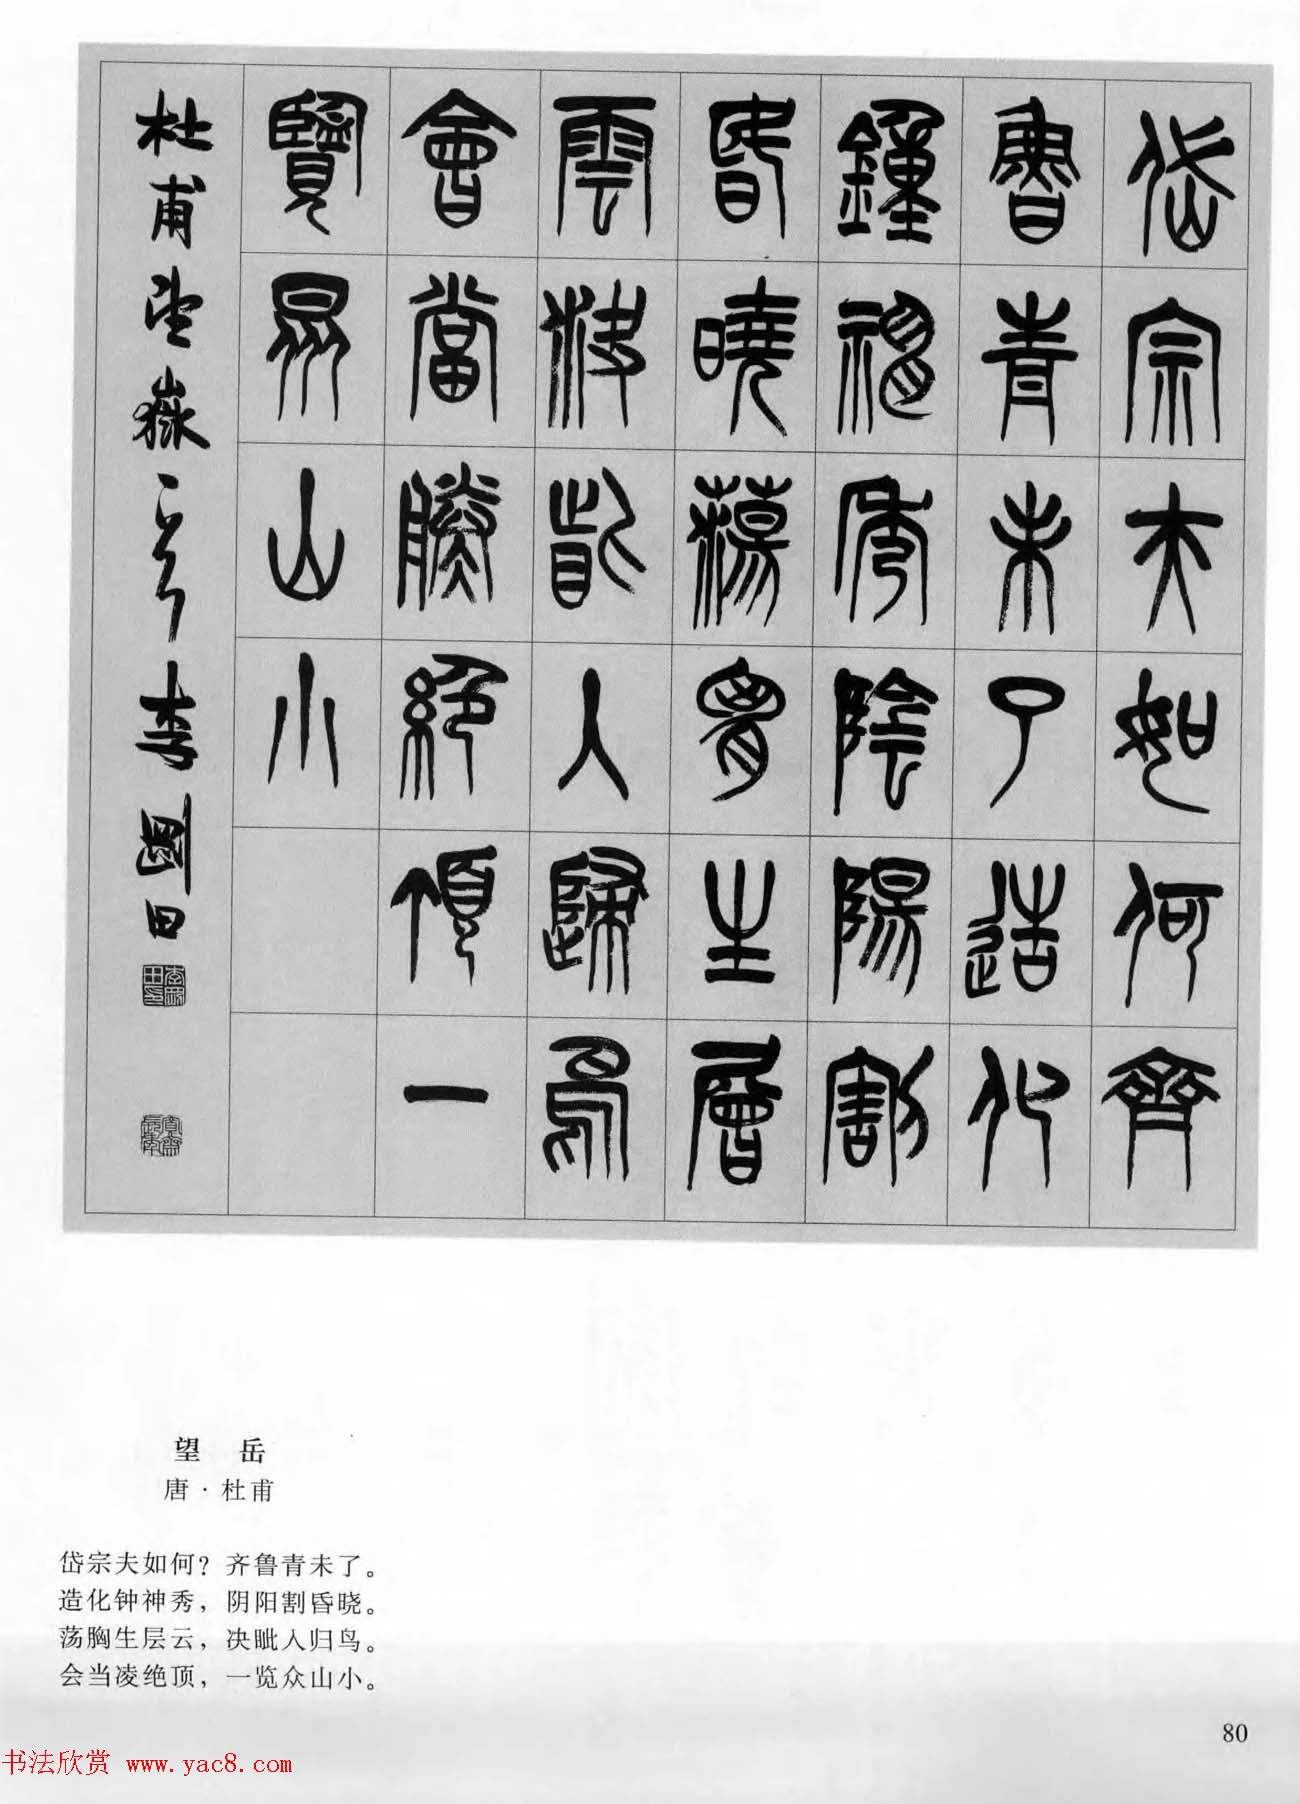 岱宗夫如何齊
魯青未了造化
鐘神秀陰陽割
昏曉蕩胷生層
雲決眥入歸鳥
會當凌絕頂一
覽眾山小
杜甫望嶽一首李剛田
望岳
唐·杜甫
岱宗夫如何？齐鲁青未了。
造化钟神秀，阴阳割昏晓。
荡胸生层云，决眦人归鸟。
会当凌绝顶，一览众山小。
80
书法欣赏 www.yac8.com